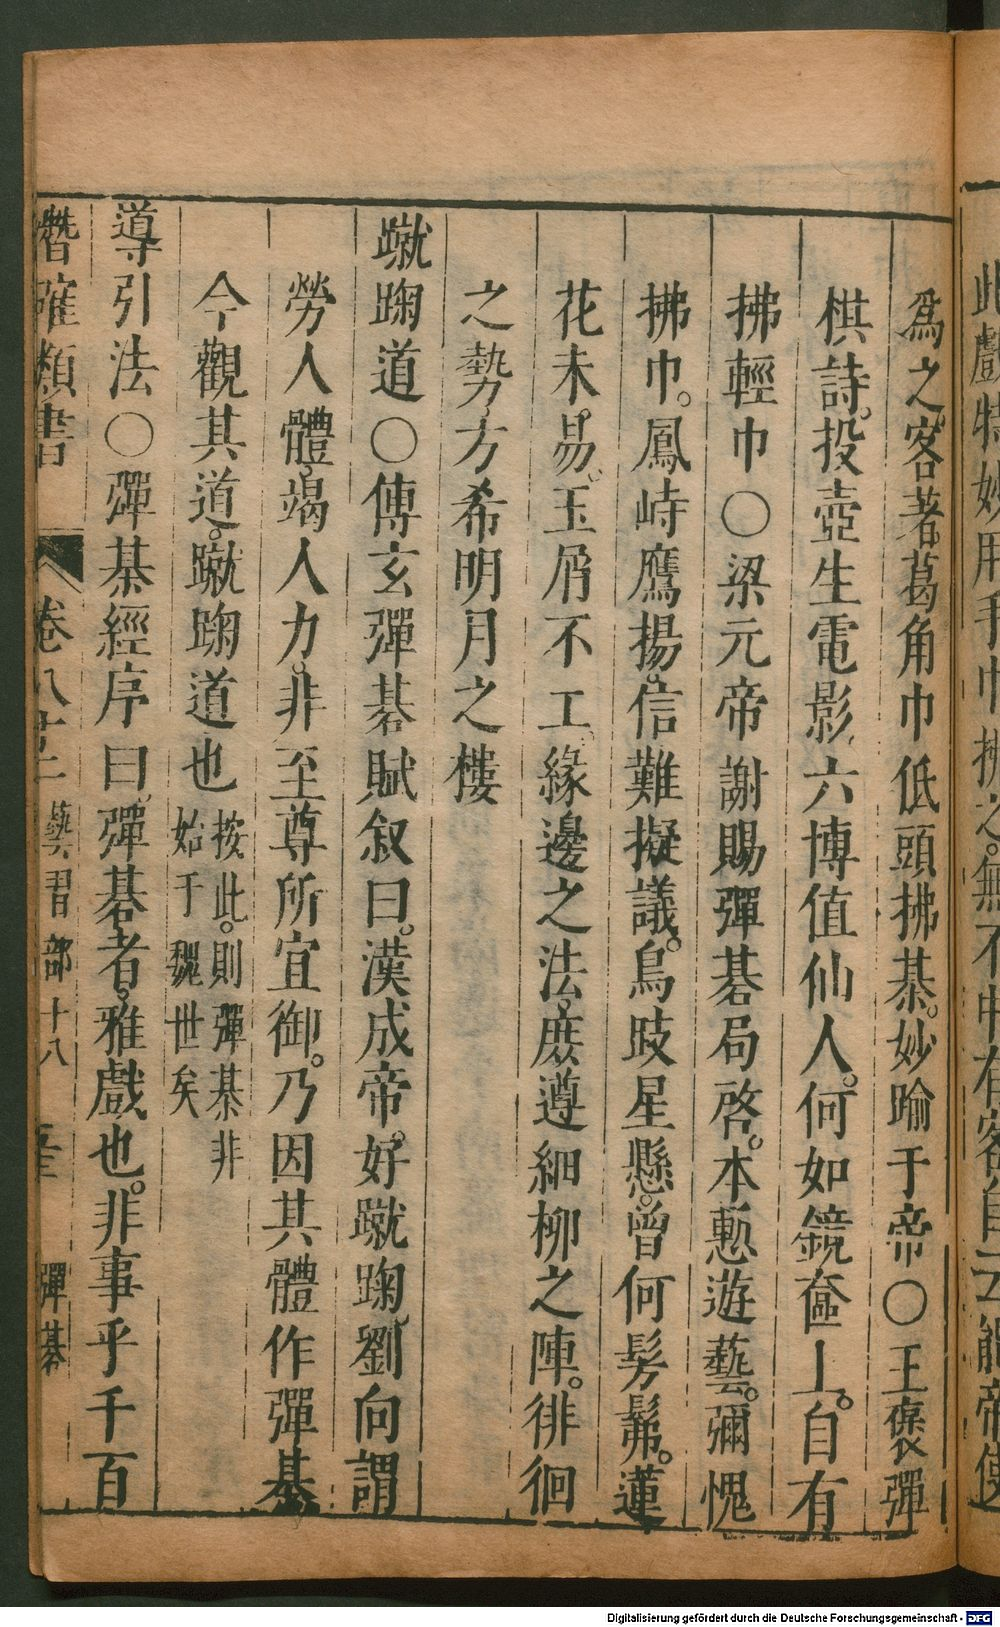 此戲特妙用手巾拂之。無不中有客自云能帝使
為之。客著葛角巾低頭拂棊。妙踰于帝〇王褒彈
棋詩。投壺生電影。六博值仙人。何如鏡奩上。自有
拂輕巾〇梁元帝謝賜彈碁局啓。本慙遊藝。彌愧
拂巾。鳳峙鷹揚。信難擬議。烏跂星懸。曾何髣髴。蓮
花未易。玉屑不工。緣邊之法。庶遵細柳之陣。徘徊
之勢。方希明月之樓
蹴踘道〇傅玄彈碁賦叙曰。漢成帝。好蹴踘。劉向謂
勞人體。竭人力。非至尊所宜御。乃因其體作彈碁
今觀其道。蹴踘道也按此。則彈棊非始于魏世矣
導引法〇彈棊經序曰。彈碁者。雅戲也。非事乎千百
潛確類書 卷八十二 藝習部十八 彈碁
Digitalisierung gefördert durch die Deutsche Forschungsgemeinschaft - DFG